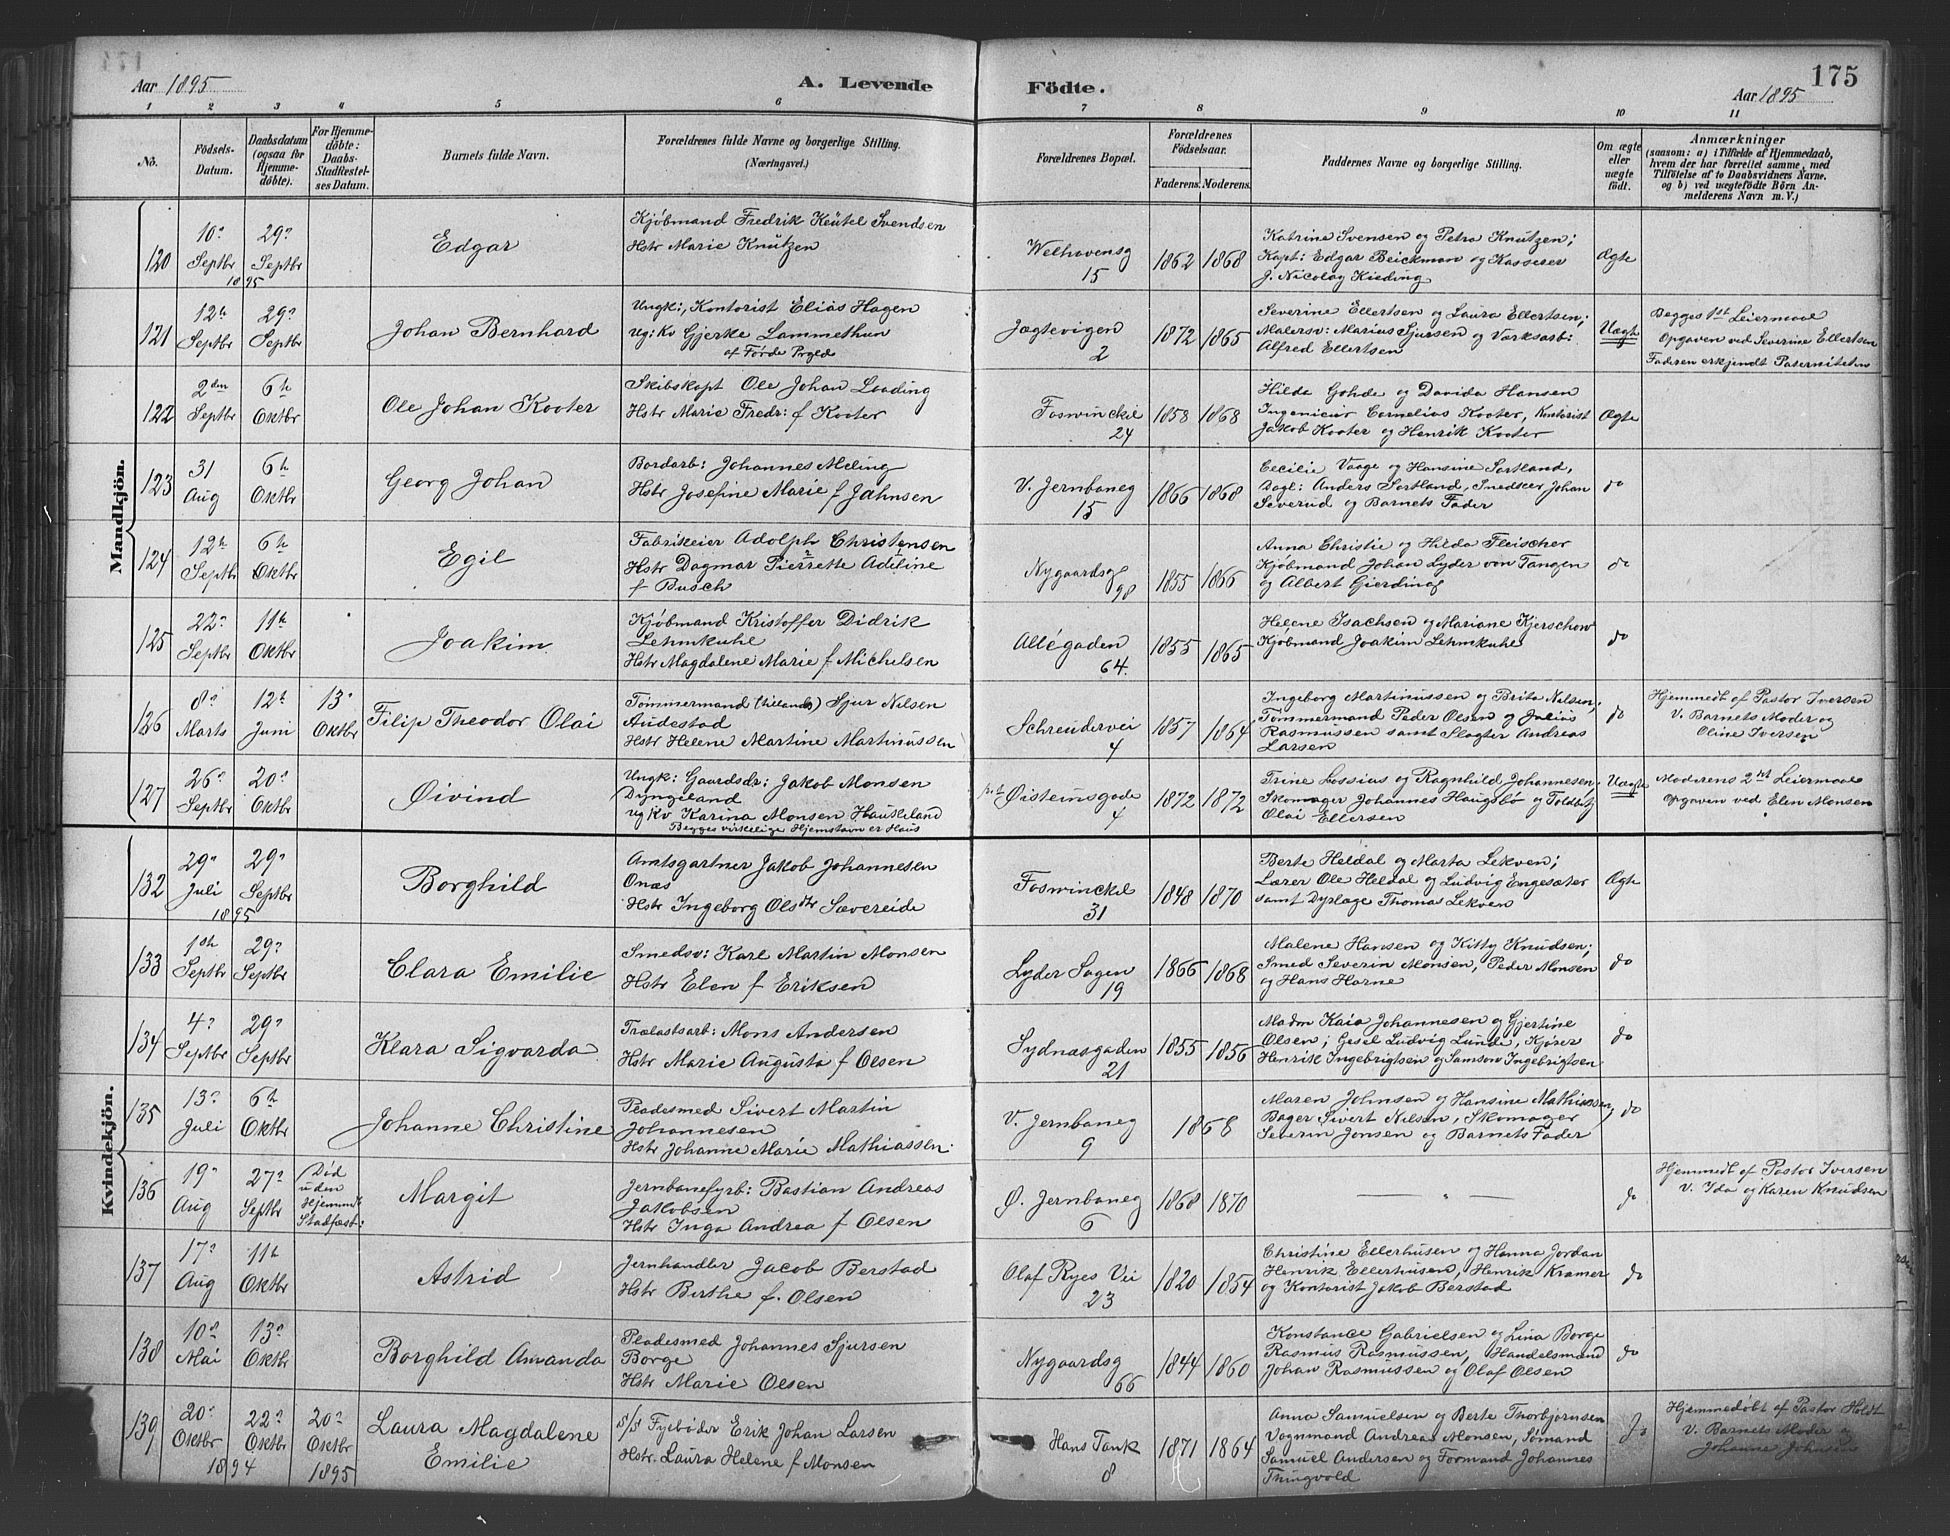 Aar 1895 A. Levende Födte. 175
Aar 1895
1 2 3 4 5 6 7 8 9 10 11
No. Födsels-Datum. Daabsdatum (ogsaa for Hjemmedöbte). For Hjemmedöbte: Daabs-Stadfæstelses Datum. Barnets fulde Navn. Forældrenes fulde Navne og borgerlige Stilling. (Næringsvei.) Forældrenes Bopæl. Forældrenes Födselsaar. Faderens. Moderens. Faddernes Navne og borgerlige Stilling. Om ægte eller uægte födt. Anmærkninger (saasom: a) i Tilfælde af Hjemmedaab, hvem der har forrettet samme, med Tilföielse af to Daabsvidners Navne. og b) ved uægtefödte Börn Anmelderens Navn m. V.)
Mandkjön.
120 10de Septbr 1895 29de Septbr Edgar
Kjøbmand Fredrik Keütel Svendsen
Hstr Marie Knützen
Welhavensg 15 1862 1868
Katrine Svensen og Petra Knützen;
Kapt: Edgar Beickman og Kasserer
J. Nicolay Kieding
Ægte
121 12te Septbr 29de Septbr Johan Bernhard
Ungk:, Kontorist Elias Hagen
ug: Kv Gjerke Lammethun
af Førde Prgld
Jægtevigen 2 1872 1865
Severine Ellertsen og Laura Ellertsen;
Malersv: Marius Sjursen og Værksarb:
Alfred Ellertsen
Uægte
Begges 1st Leiermaal
Opgaven ved Severine Ellertsen
Faderen erkjendt Paterniteten
122 2den Septbr 6te Oktbr Ole Johan Kooter
Skibskapt Ole Johan Loading
Hstr Marie Fredr: f Kooter
Foswinckel 24 1858 1868
Hilda Gohde og Davida Hansen
Ingenieur Cornelias Kooter, Kontorist
Jakob Kooter og Henrik Kooter
Ægte
123 31 Aug 6te Oktbr Georg Johan
Bordarb: Johannes Meling
Hstr Josefine Marie f Jahnsen
V. Jernbaneg 15 1866 1868
Cecilie Vaage og Hansine Sortland,
Dagl: Anders Sortland, Snedker Johan
Severud og Barnets Fader
do
124 12te Septbr 6te Oktbr Egil
Fabrikeier Adolph Christensen
Hstr Dagmar Pierrette Adeline
f Busch
Nygaardsg 98 1855 1866
Anna Christie og Hilda Fleischer
Kjøbmand Johan Lyder von Tangen
og Albert Gierding
do
125 22de Septbr 11te Oktbr Joakim
Kjøbmand Kristoffer Didrik
Lehmkuhl
Hstr Magdalene Marie f Michelsen
Allégaden 64 1855 1865
Helene Isachsen og Mariane Kjerschow
Kjøbmand Joakim Lehmkuhl
do
126 8de Marts 12te Juni 13de Oktbr Filip Theodor Olai
Tømmermand (tillands) Sjur Nilsen
Audestad
Hstr Helene Martine Martinussen
Schreudervei 4 1857 1864
Ingeborg Martinussen og Brita Nilsen;
Tømmermand Peder Olsen og Julias
Rasmussen samt Slagter Andreas
Larsen
do
Hjemmedt af Pastor Iversen
V. Barnets Moder og
Oline Iversen
127 26de Septbr 20de Oktbr Øivind
Ungk: Gaardsdr: Jakob Monsen
Dyngeland
ug Kv Karina Monsen Haukeland
Begges virkelige Hjemstavn er Haus
Øisteinsgade 4 1872 1872
Trine Lossius og Ragnhild Johannesen,
Skomager Johannes Haugsbø og Toldbtj
Olai Ellersen
Uægte
Moderens 2net Leiermaal
Opgaven ved Elen Monsen
Kvindekjön.
132 29de Juli 1895 29de Septbr Borghild
Amtsgartner Jakob Johannesen
Onæs
Hstr Ingeborg Olsdtr Sævereide
Foswinckel 31 1848 1870
Berte Heldal og Marta Lekven;
Lærer Ole Heldal og Ludvig Engesæter
samt Dyrlæge Thomas Lekven
Ægte
133 1ste Septbr 29de Septbr Clara Emilie
Smedsv: Karl Martin Monsen
Hstr Elen f Eriksen
Lyder Sagen 19 1866 1868
Malene Hansen og Kitty Knudsen;
Smed Severin Monsen, Peder Monsen
og Hans Harne
do
134 4de Septbr 29de Septbr Klara Sigvarda
Trælastarb: Mons Andersen
Hstr Marie Augusta f Olsen
Sydnæsgaden 21 1855 1856
Madm Kaia Johannesen og Gjertine
Olsen; Gesel Ludvig Lunde, Kjører
Henrik Ingebrigtsen og Samson Ingebrigtsen
do
135 13de Juli 6te Oktbr Johanne Christine
Pladesmed Sivert Martin
Johannesen
Hstr Johanne Marie Mathiassen
V. Jernbaneg 9 1868
Maren Johnsen og Hansine Mathiassen,
Bager Sivert Nilsen, Skomager
Severin Jonsen og Barnets Fader
do
136 19de Aug 27de Septbr Död uden Hjemmed Stadfæst: Margit
Jernbanefyrb: Bastian Andreas
Jakobsen
Hstr Inga Andrea f Olsen
Ø. Jernbaneg 6 1868 1870
— " —
do
Hjemmedt af Pastor Iversen
V. Ida og Karen Knudsen
137 17de Aug 11te Oktbr Astrid
Jernhandler Jacob Berstad
Hstr Birthe f. Olsen
Olaf Ryes Vei 23 1820 1854
Christine Ellerhusen og Hanna Jordan
Henrik Ellerhusen, Henrik Kramer
og Kontorist Jakob Berstad
do
138 10de Mai 13de Oktbr Borghild Amanda
Pladesmed Johannes Sjursen
Borge
Hstr Marie Olsen
Nygaardsg 66 1844 1860
Konstance Gabrielsen og Lina Borge
Rasmus Rasmussen, Handelsmand
Johan Rasmussen og Olaf Olsen
do
139 20de Oktbr 1894 22de Oktbr 20de Oktbr 1895 Laura Magdalene Emilie
S/S Fyrbøder Erik Johan Larsen
Hstr. Laura Helene f Monsen
Hans Tank 8 1871 1864
Anna Samuelsen og Berte Thorbjørnsen
Vognmand Andreas Monsen, Sømand
Samuel Andersen og Formand Johannes
Thingvold
do
Hjemmedøbt af Pastor Holdt
V. Barnets Moder og
Johanne Johnsen